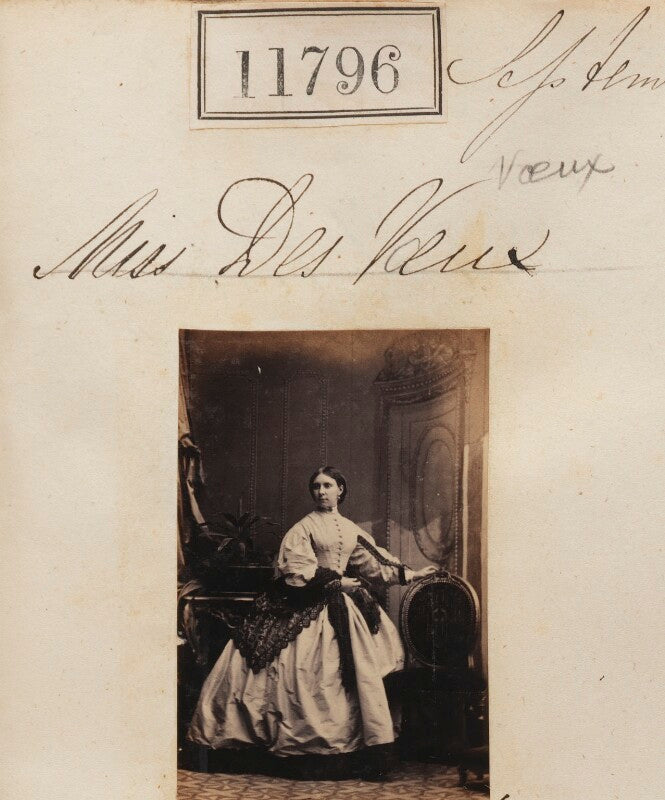 11796 Septem
Vœux
Miss Des Vœux